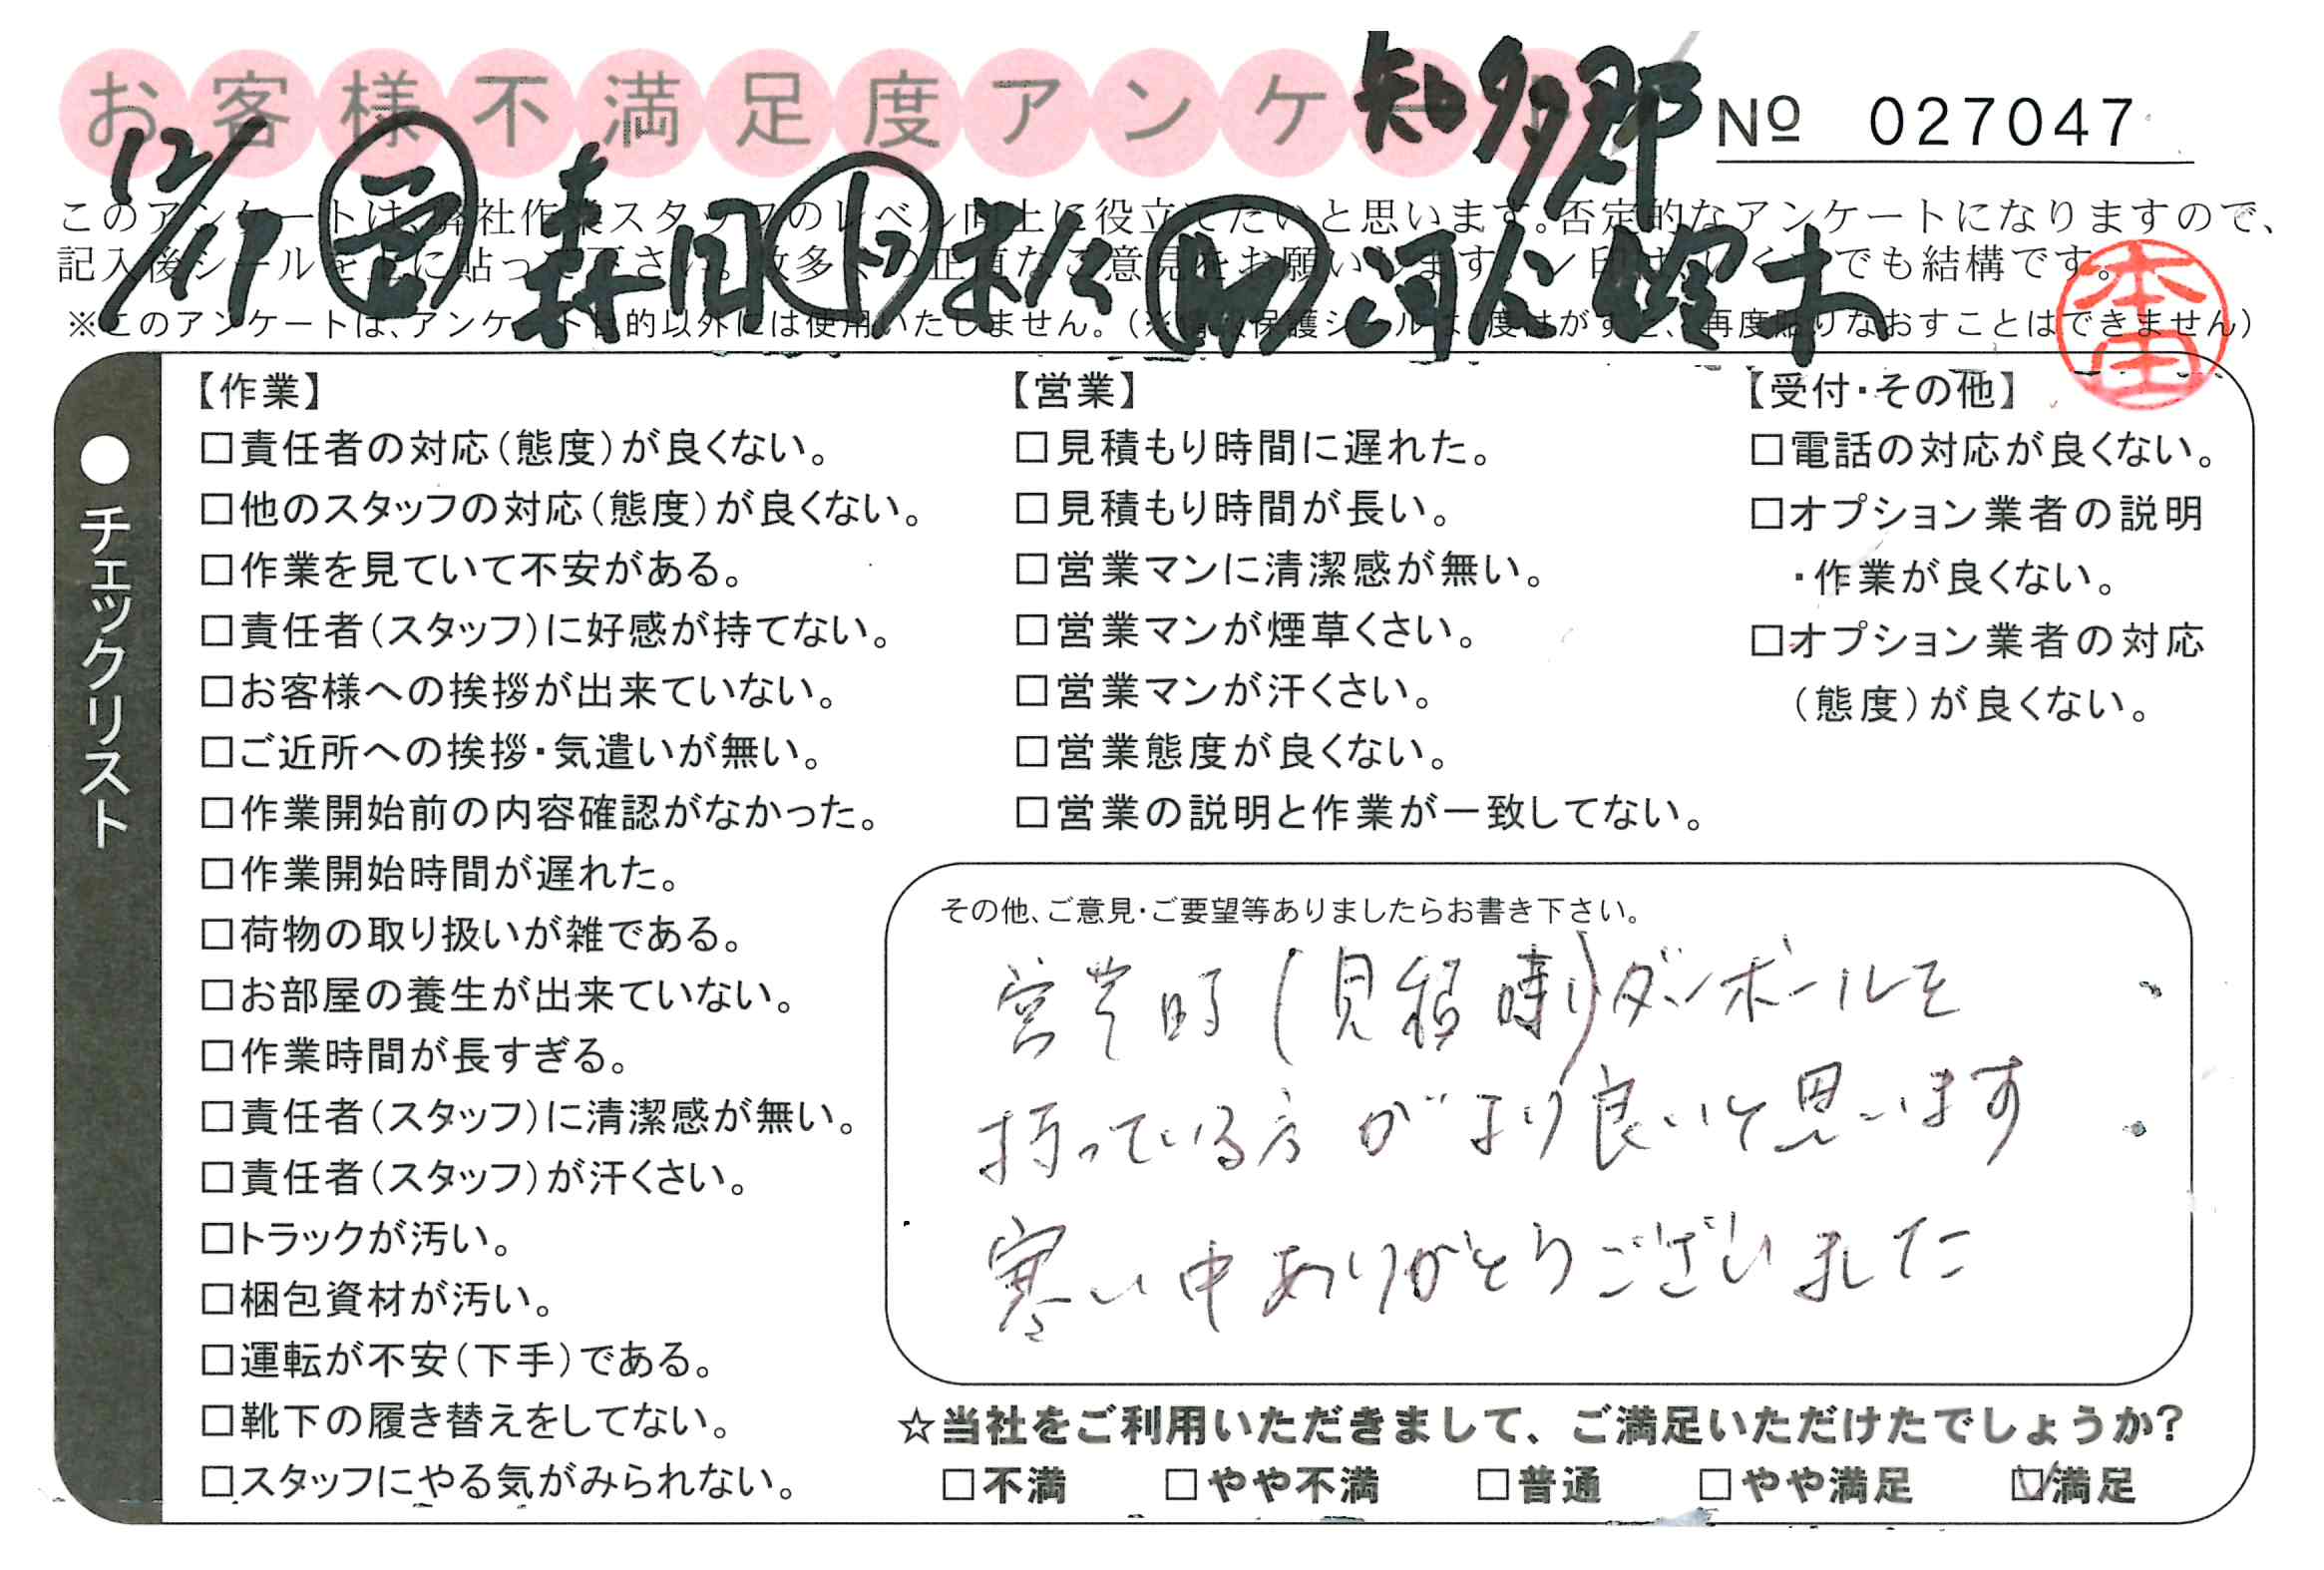 お客様不満足度アンケート
知多郡
№ 027047
12/17 営 森田 ト 末松 助 河合 鈴木
このアンケートは、弊社作業スタッフのレベル向上に役立てたいと思います。否定的なアンケートになりますので、
記入後シールを上に貼って下さい。数多くの正直なご意見をお願いします。✓印は、いくつでも結構です。
※このアンケートは、アンケート目的以外には使用いたしません。(※情報保護シールは1度はがすと、再度貼りなおすことはできません)
本田
●チェックリスト
【作業】
□責任者の対応(態度)が良くない。
□他のスタッフの対応(態度)が良くない。
□作業を見ていて不安がある。
□責任者(スタッフ)に好感が持てない。
□お客様への挨拶が出来ていない。
□ご近所への挨拶・気遣いが無い。
□作業開始前の内容確認がなかった。
□作業開始時間が遅れた。
□荷物の取り扱いが雑である。
□お部屋の養生が出来ていない。
□作業時間が長すぎる。
□責任者(スタッフ)に清潔感が無い。
□責任者(スタッフ)が汗くさい。
□トラックが汚い。
□梱包資材が汚い。
□運転が不安(下手)である。
□靴下の履き替えをしてない。
□スタッフにやる気がみられない。
【営業】
□見積もり時間に遅れた。
□見積もり時間が長い。
□営業マンに清潔感が無い。
□営業マンが煙草くさい。
□営業マンが汗くさい。
□営業態度が良くない。
□営業の説明と作業が一致してない。
【受付・その他】
□電話の対応が良くない。
□オプション業者の説明
・作業が良くない。
□オプション業者の対応
(態度)が良くない。
その他、ご意見・ご要望等ありましたらお書き下さい。
営業時(見積時)ダンボールを
持っている方がより良いと思います
寒い中ありがとうございました
☆当社をご利用いただきまして、ご満足いただけたでしょうか?
□不満 □やや不満 □普通 □やや満足 ☑満足